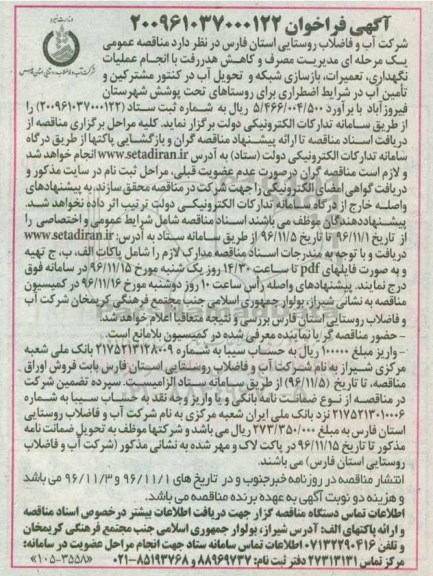 آگهی فراخوان ۲۰۰۹۶۱۰۳۷۰۰۰۱۲۲
شرکت آب و فاضلاب روستایی استان فارس در نظر دارد مناقصه عمومی
یک مرحله ای مدیریت مصرف و کاهش هدررفت با انجام عملیات
نگهداری، تعمیرات، بازسازی شبکه و تحویل آب در کنتور مشترکین و
تأمین آب در شرایط اضطراری برای روستاهای تحت پوشش شهرستان
فیروزآباد با برآورد ۵/۴۶۶/۰۰۴/۵۰۰ ریال به شماره ثبت ستاد (۲۰۰۹۶۱۰۳۷۰۰۰۱۲۲) را
از طریق سامانه تدارکات الکترونیکی دولت برگزار نماید. کلیه مراحل برگزاری مناقصه از
دریافت اسناد مناقصه تا ارائه پیشنهاد مناقصه گران و بازگشایی پاکتها از طریق درگاه
سامانه تدارکات الکترونیکی دولت (ستاد) به آدرس www.setadiran.ir انجام خواهد شد
و لازم است مناقصه گران درصورت عدم عضویت قبلی، مراحل ثبت نام در سایت مذکور و
دریافت گواهی امضای الکترونیکی را جهت شرکت در مناقصه محقق سازند. به پیشنهادهای
واصله خارج از درگاه سامانه تدارکات الکترونیکی دولت ترتیب اثر داده نخواهد شد.
پیشنهاددهندگان موظف می باشند اسناد مناقصه شامل شرایط عمومی و اختصاصی را
از تاریخ ۹۶/۱۱/۱ تا تاریخ ۹۶/۱۱/۵ از طریق سامانه ستاد به آدرس: www.setadiran.ir
دریافت و با توجه به مندرجات اسناد مناقصه مدارک لازم را شامل پاکات الف، ب، ج تهیه
و به صورت فایلهای pdf تا ساعت ۱۴/۳۰ روز یک شنبه مورخ ۹۶/۱۱/۱۵ در سامانه فوق
درج نمایند. پیشنهادهای واصله رأس ساعت ۱۰ روز دوشنبه مورخ ۹۶/۱۱/۱۶ در کمیسیون
مناقصه به نشانی شیراز، بولوار جمهوری اسلامی جنب مجتمع فرهنگی کریمخان شرکت آب
و فاضلاب روستایی استان فارس بررسی و نتیجه متعاقبا اعلام خواهد شد.
- حضور مناقصه گر یا نماینده معرفی شده در کمیسیون بلامانع است.
- واریز مبلغ ۱۰۰۰۰۰ ریال به حساب سیبا به شماره ۲۱۷۵۲۱۳۱۲۸۰۰۹ بانک ملی شعبه
مرکزی شیراز به نام شرکت آب و فاضلاب روستایی استان فارس بابت فروش اوراق
مناقصه، تا تاریخ (۹۶/۱۱/۵) از طریق سامانه ستاد الزامیست. سپرده تضمین شرکت
در مناقصه از نوع ضمانت نامه بانکی و یا واریز وجه نقد به حساب سیبا به شماره
۲۱۷۵۲۱۳۰۱۰۰۰۶ نزد بانک ملی ایران شعبه مرکزی به نام شرکت آب و فاضلاب روستایی
استان فارس به مبلغ ۲۷۳/۳۵۰/۰۰۰ ریال می باشد و شرکتها موظف به تحویل ضمانت نامه
مذکور تا تاریخ ۹۶/۱۱/۱۵ در پاکت لاک و مهر شده به نشانی مذکور (شرکت آب و فاضلاب
روستایی استان فارس) می باشند.
انتشار مناقصه در روزنامه خبرجنوب و در تاریخ های ۹۶/۱۱/۱ و ۹۶/۱۱/۳ می باشد
و هزینه دو نوبت آگهی به عهده برنده مناقصه می باشد.
اطلاعات تماس دستگاه مناقصه گزار جهت دریافت اطلاعات بیشتر درخصوص اسناد مناقصه
و ارائه پاکتهای الف: آدرس شیراز، بولوار جمهوری اسلامی جنب مجتمع فرهنگی کریمخان
و تلفن ۰۷۱۳۲۲۹۰۴۱۶ اطلاعات تماس سامانه ستاد جهت انجام مراحل عضویت در سامانه:
مرکز تماس ۲۷۳۱۳۱۳۱ دفتر ثبت نام: ۸۸۹۶۹۷۳۷ و ۸۵۱۹۳۷۶۸-۰۲۱
«۱۰۵-۳۵۵۸»